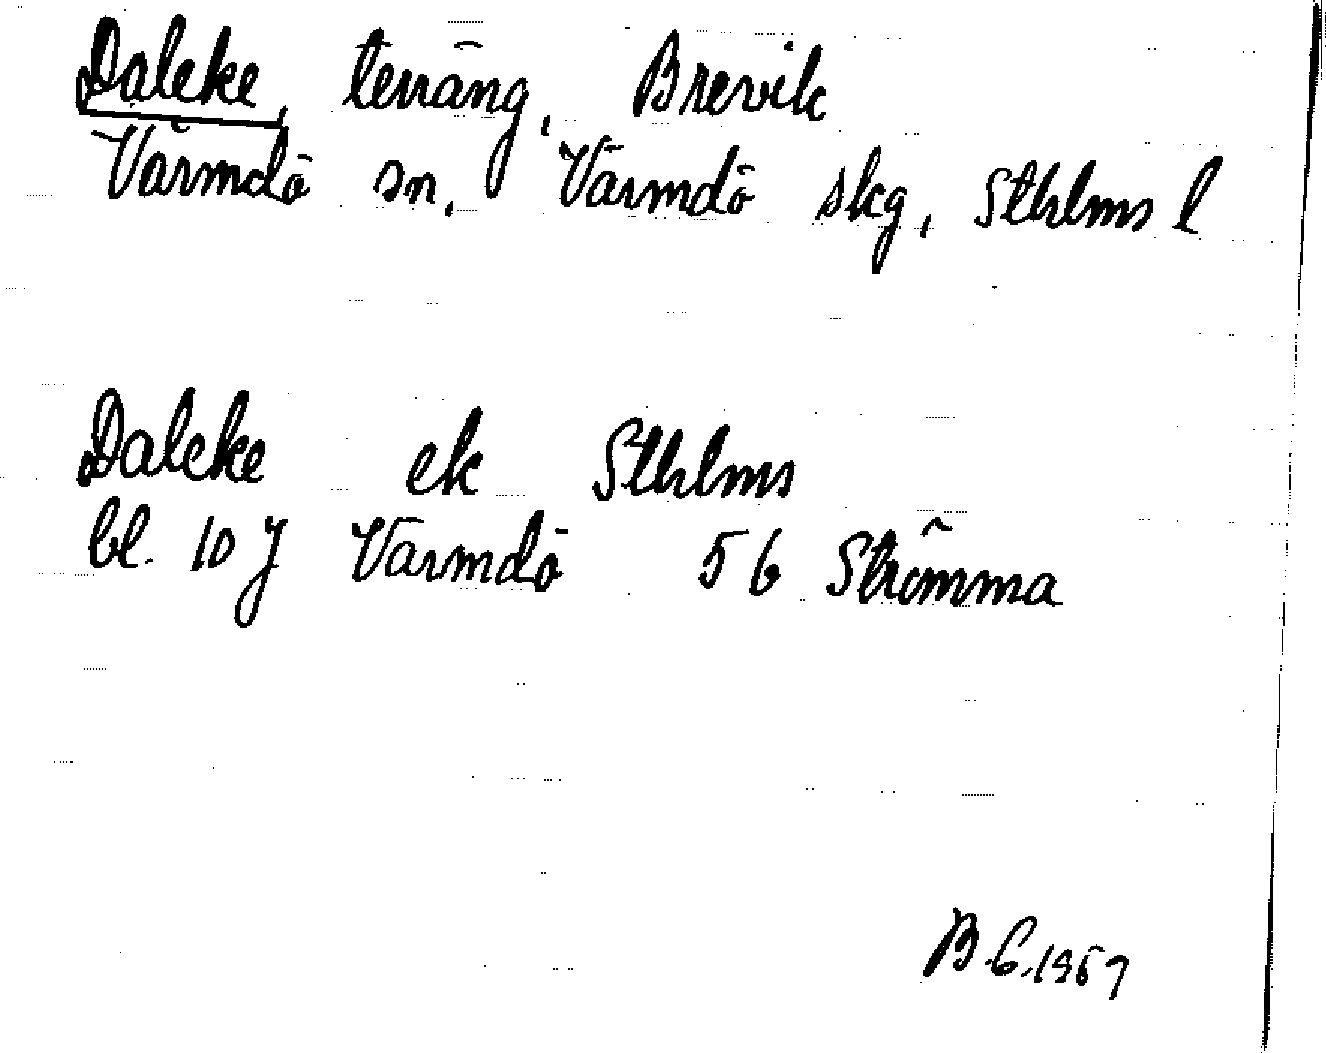 Daleke, terräng, Brevik
Värmdö sn, Värmdö skg, Sthlms l
Daleke ek Sthlms
bl. 10 J Värmdö 5 b Strömma
B.G. 1957